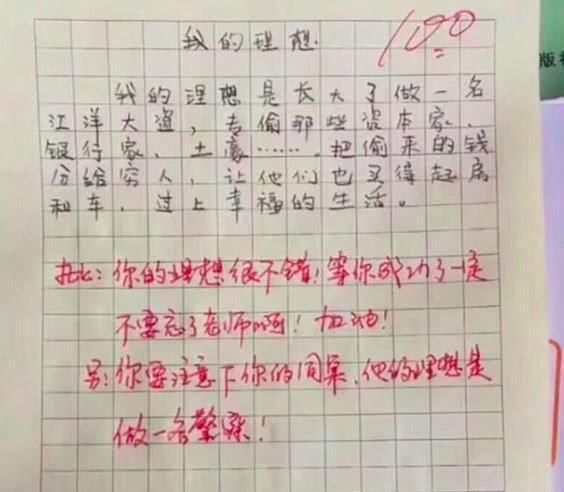 我的理想
100
我的理想是长大了做一名
江洋大盗，去偷那些资本家、
银行家、土豪……，把偷来的钱
分给穷人，让他们也买得起房
和车，过上幸福的生活。
批：你的理想很不错！等你成功了一定
不要忘了老师啊！加油！
另：你要注意下你的同桌，他的理想是
做一名警察！
版社